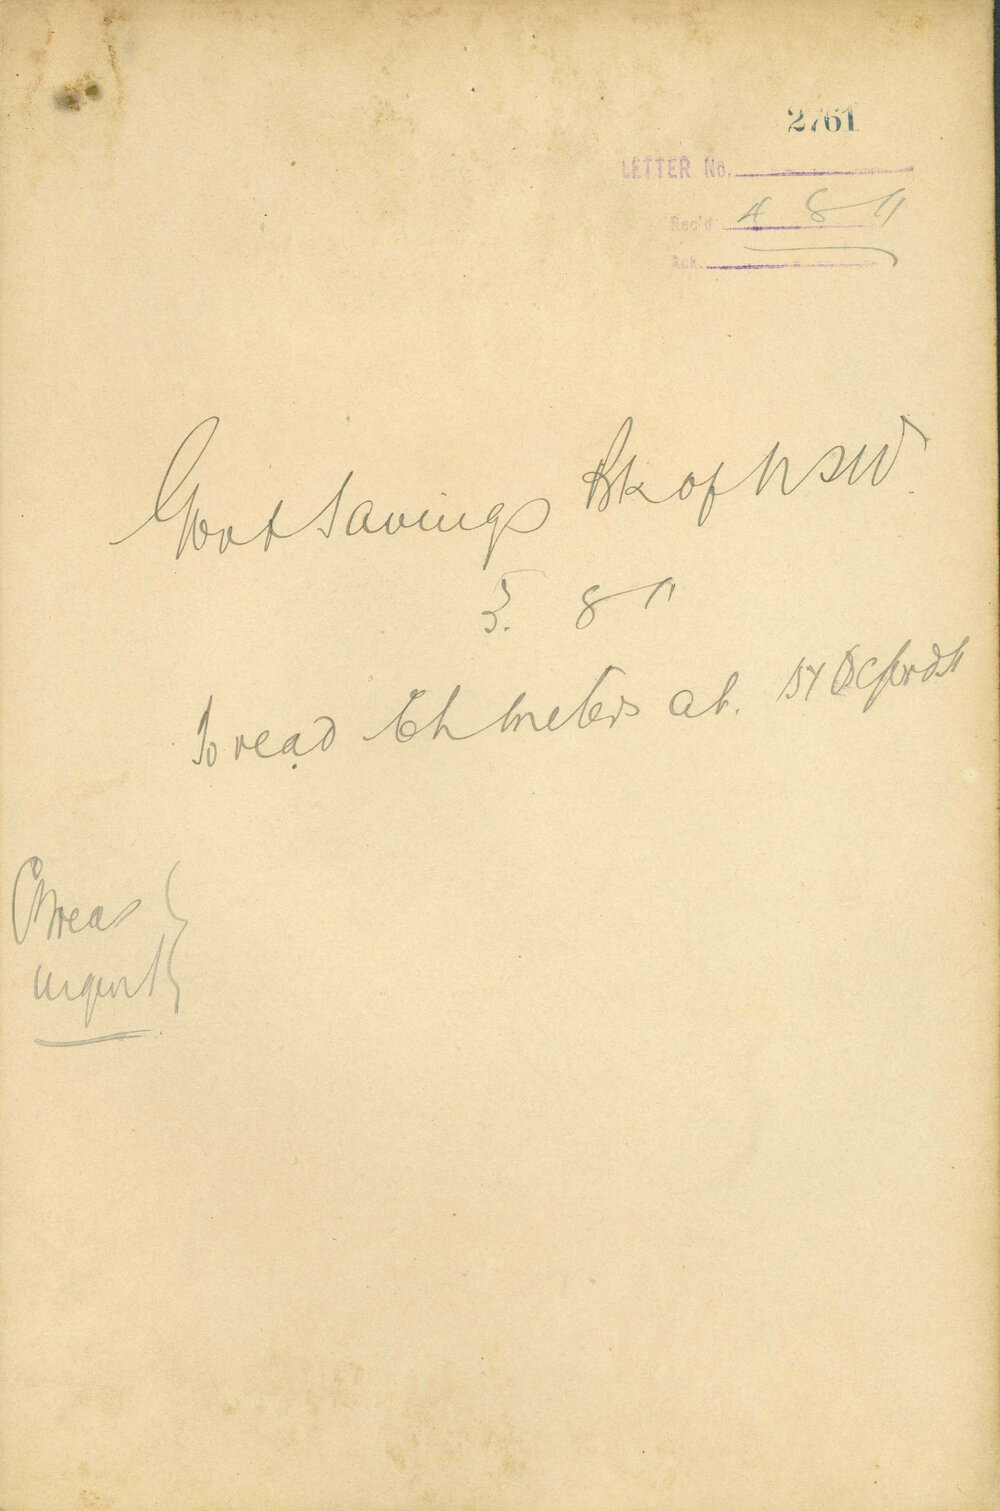 2761
LETTER No.
Rec'd 4 8 11
Ack.
Govt Savings Bk of NSW.
3. 8 11
To read meters at. 57 Oxford St
urgent